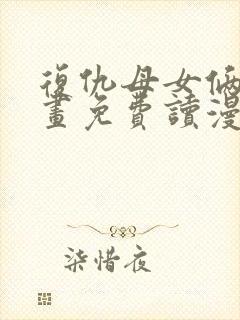 復仇母女俩
畫免費讀漫
柒惜夜